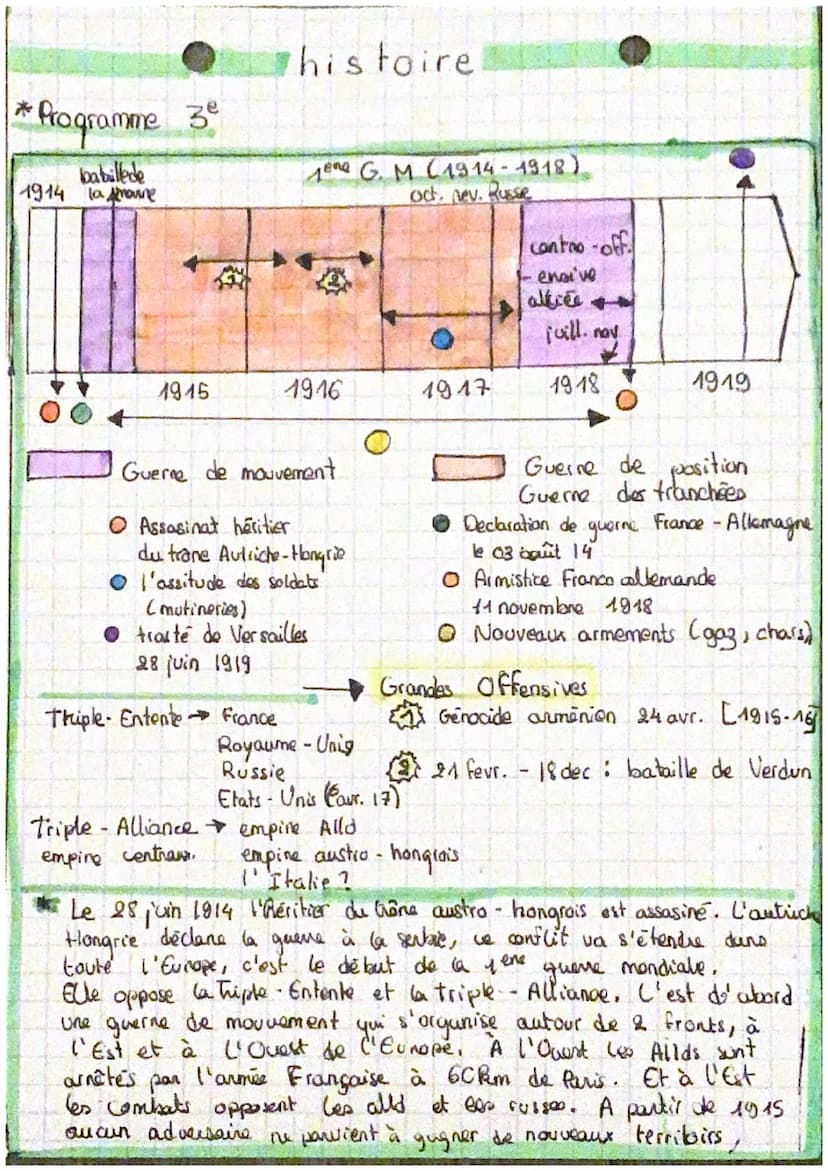 histoire
*Programme 3e
1914
bataille de
la Marne
1ène G.M (1914-1918)
oct. rev. Russe
1
2
contre-off
-ensive
alliée
juill. nov
1915
1916
1917
1918
1919
Guerre de mouvement
Guerre de position
Guerre des tranchées
Assasinat héritier
du trône Autriche-Hongrie
Declaration de guerre France - Allemagne
le 03 août 14
l'assitude des soldats
(mutineries)
Armistice Franco allemande
11 novembre 1918
traité de Versailles
28 juin 1919
Nouveaux armements (gaz, chars)
→ Grandes Offensives
Triple-Entente → France
Royaume-Unis
Russie
Etats-Unis (avr. 17)
1 Génocide arménien 24 avr. [1915-16]
2 21 fevr. - 18 dec : bataille de Verdun
Triple-Alliance → empire Alld
empire centraux. empire austro-hongrois
l'Italie ?
* Le 28 juin 1914 l'Héritier du trône austro-hongrois est assasiné. L'autriche
Hongrie déclare la guerre à la serbie, ce conflit va s'étendre dans
toute l'Europe, c'est le début de la 1ère guerre mondiale.
Elle oppose la Triple-Entente et la triple-Alliance. C'est d'abord
une guerre de mouvement qui s'organise autour de 2 fronts, à
l'Est et à l'Ouest de l'Europe. À l'Ouest les Allds sont
arrêtés par l'armée Française à 60km de Paris. Et à l'Est
les combats opposent les alld et les russes. A partir de 1915
aucun adversaire ne parvient à gagner de nouveaux territoirs,